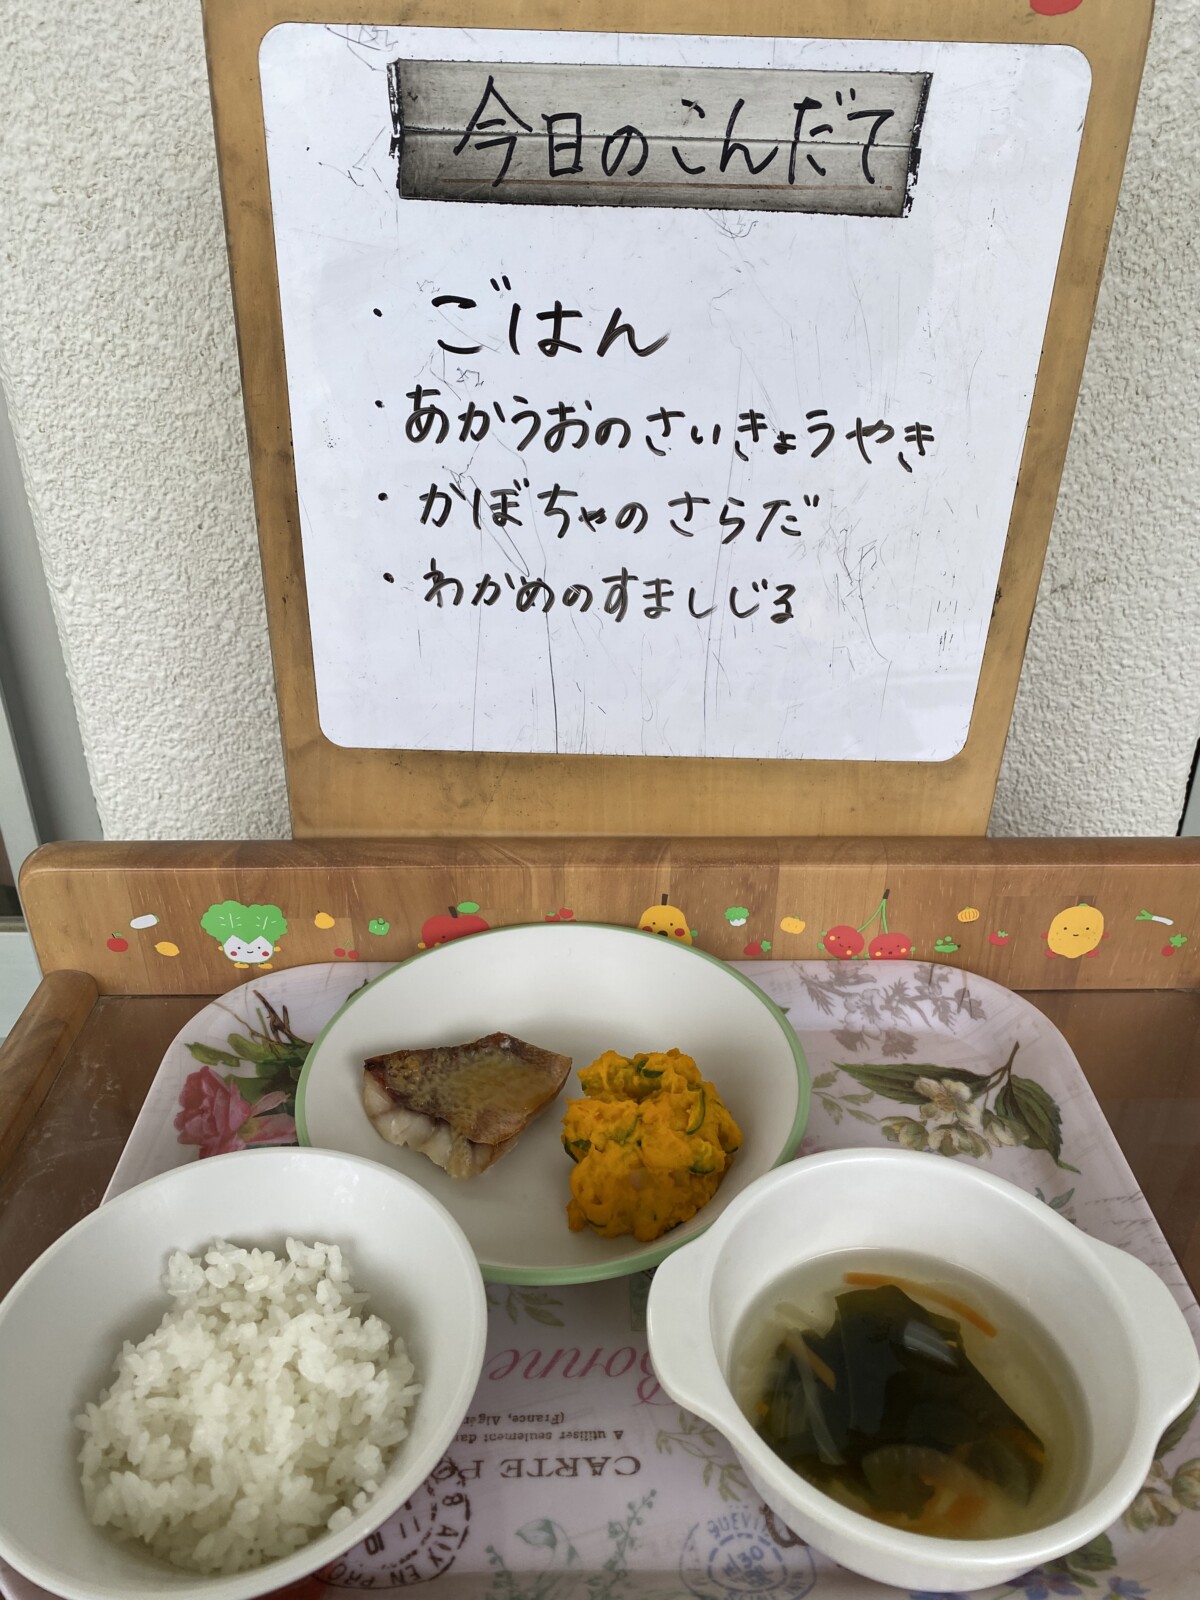 今日のこんだて
・ごはん
・あかうおのさいきょうやき
・かぼちゃのさらだ
・わかめのすましじる
Bonne
(France, Algér
A utiliser seulement dan
CARTE PO